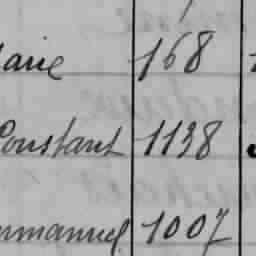 aire 168
Constant 1138
mmanuel 1007